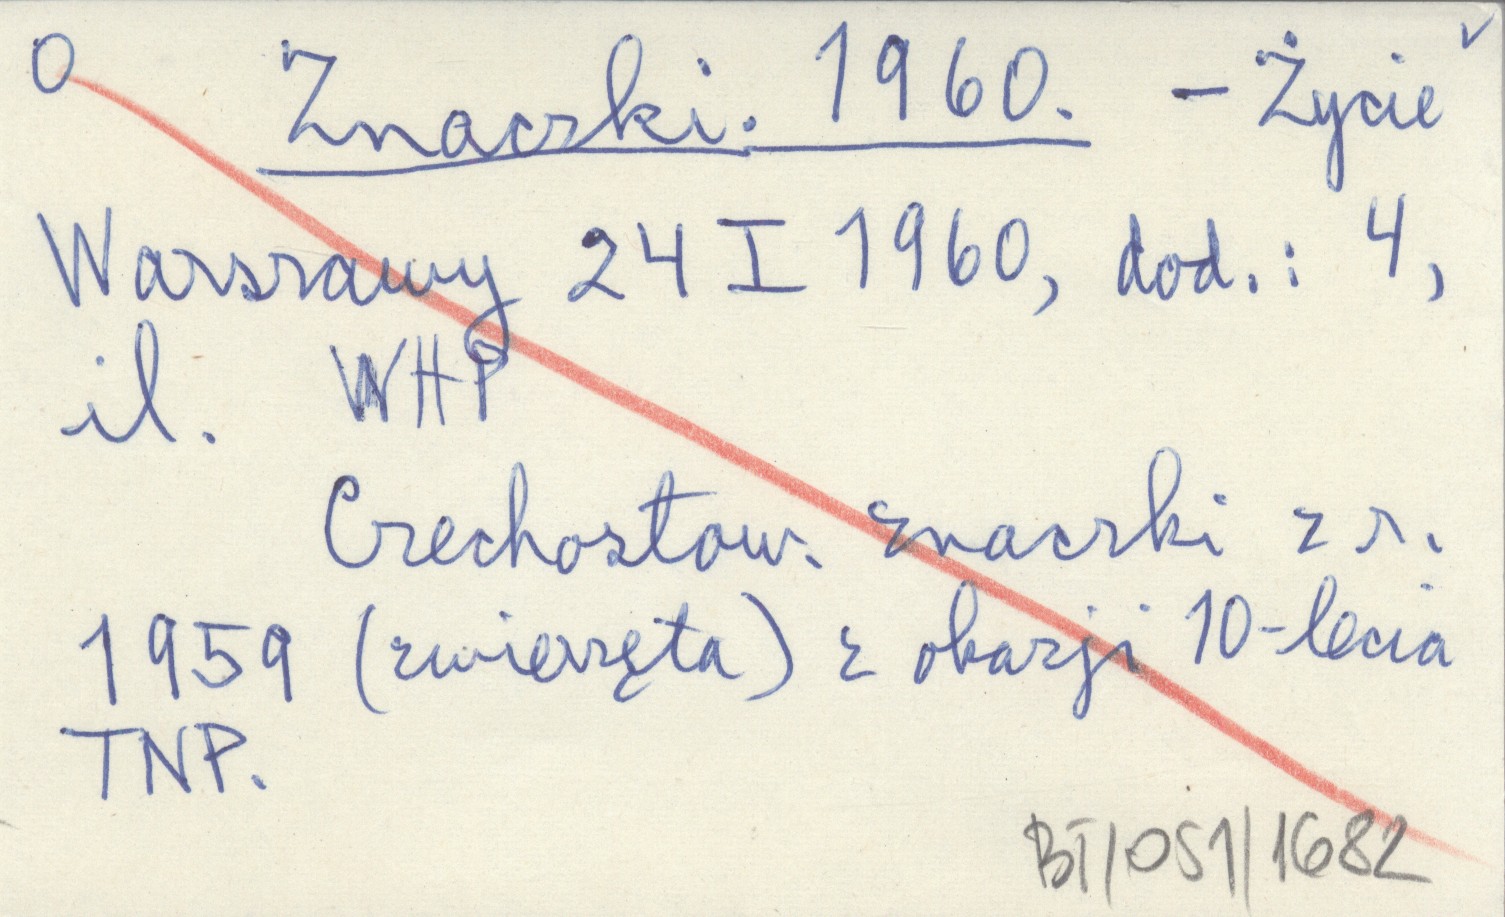 O Znaczki. 1960. – Życie
Warszawy 24 I 1960, dod.: 4,
il. WHP
Czechosłow. znaczki z r.
1959 (zwierzęta) z okazji 10-lecia
TNP.
BT/OS1/1682